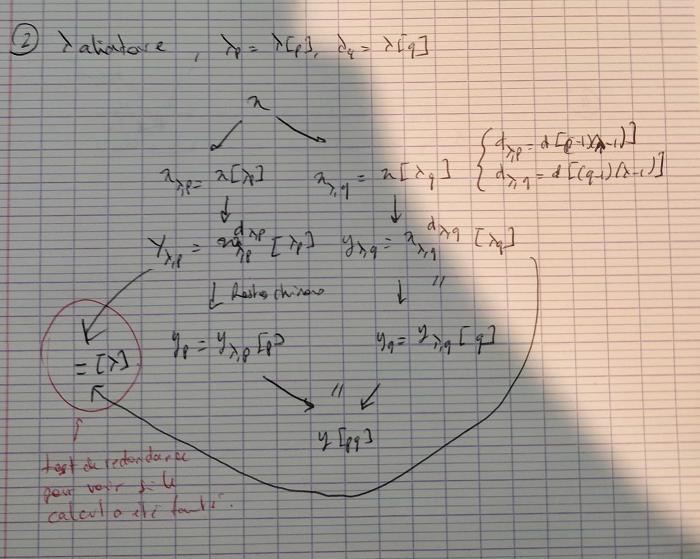 ② λ aléatoire, λp = λ[p], λq = λ[q]
x
x_{λ,p} = x[λp]
x_{λ,q} = x[λq]
{ d_{λ,p} = d[(p-1)(λ-1)]
d_{λ,q} = d[(q-1)(λ-1)]
y_{λ,p} = x_{λ,p}^{d_{λ,p}} [λp]
y_{λ,q} = x_{λ,q}^{d_{λ,q}} [λq]
Restes chinois
//
y_p = y_{λ,p} [p]
y_q = y_{λ,q} [q]
= [λ]
//
y [pq]
test de redondance
pour voir si le
calcul a été fauté.